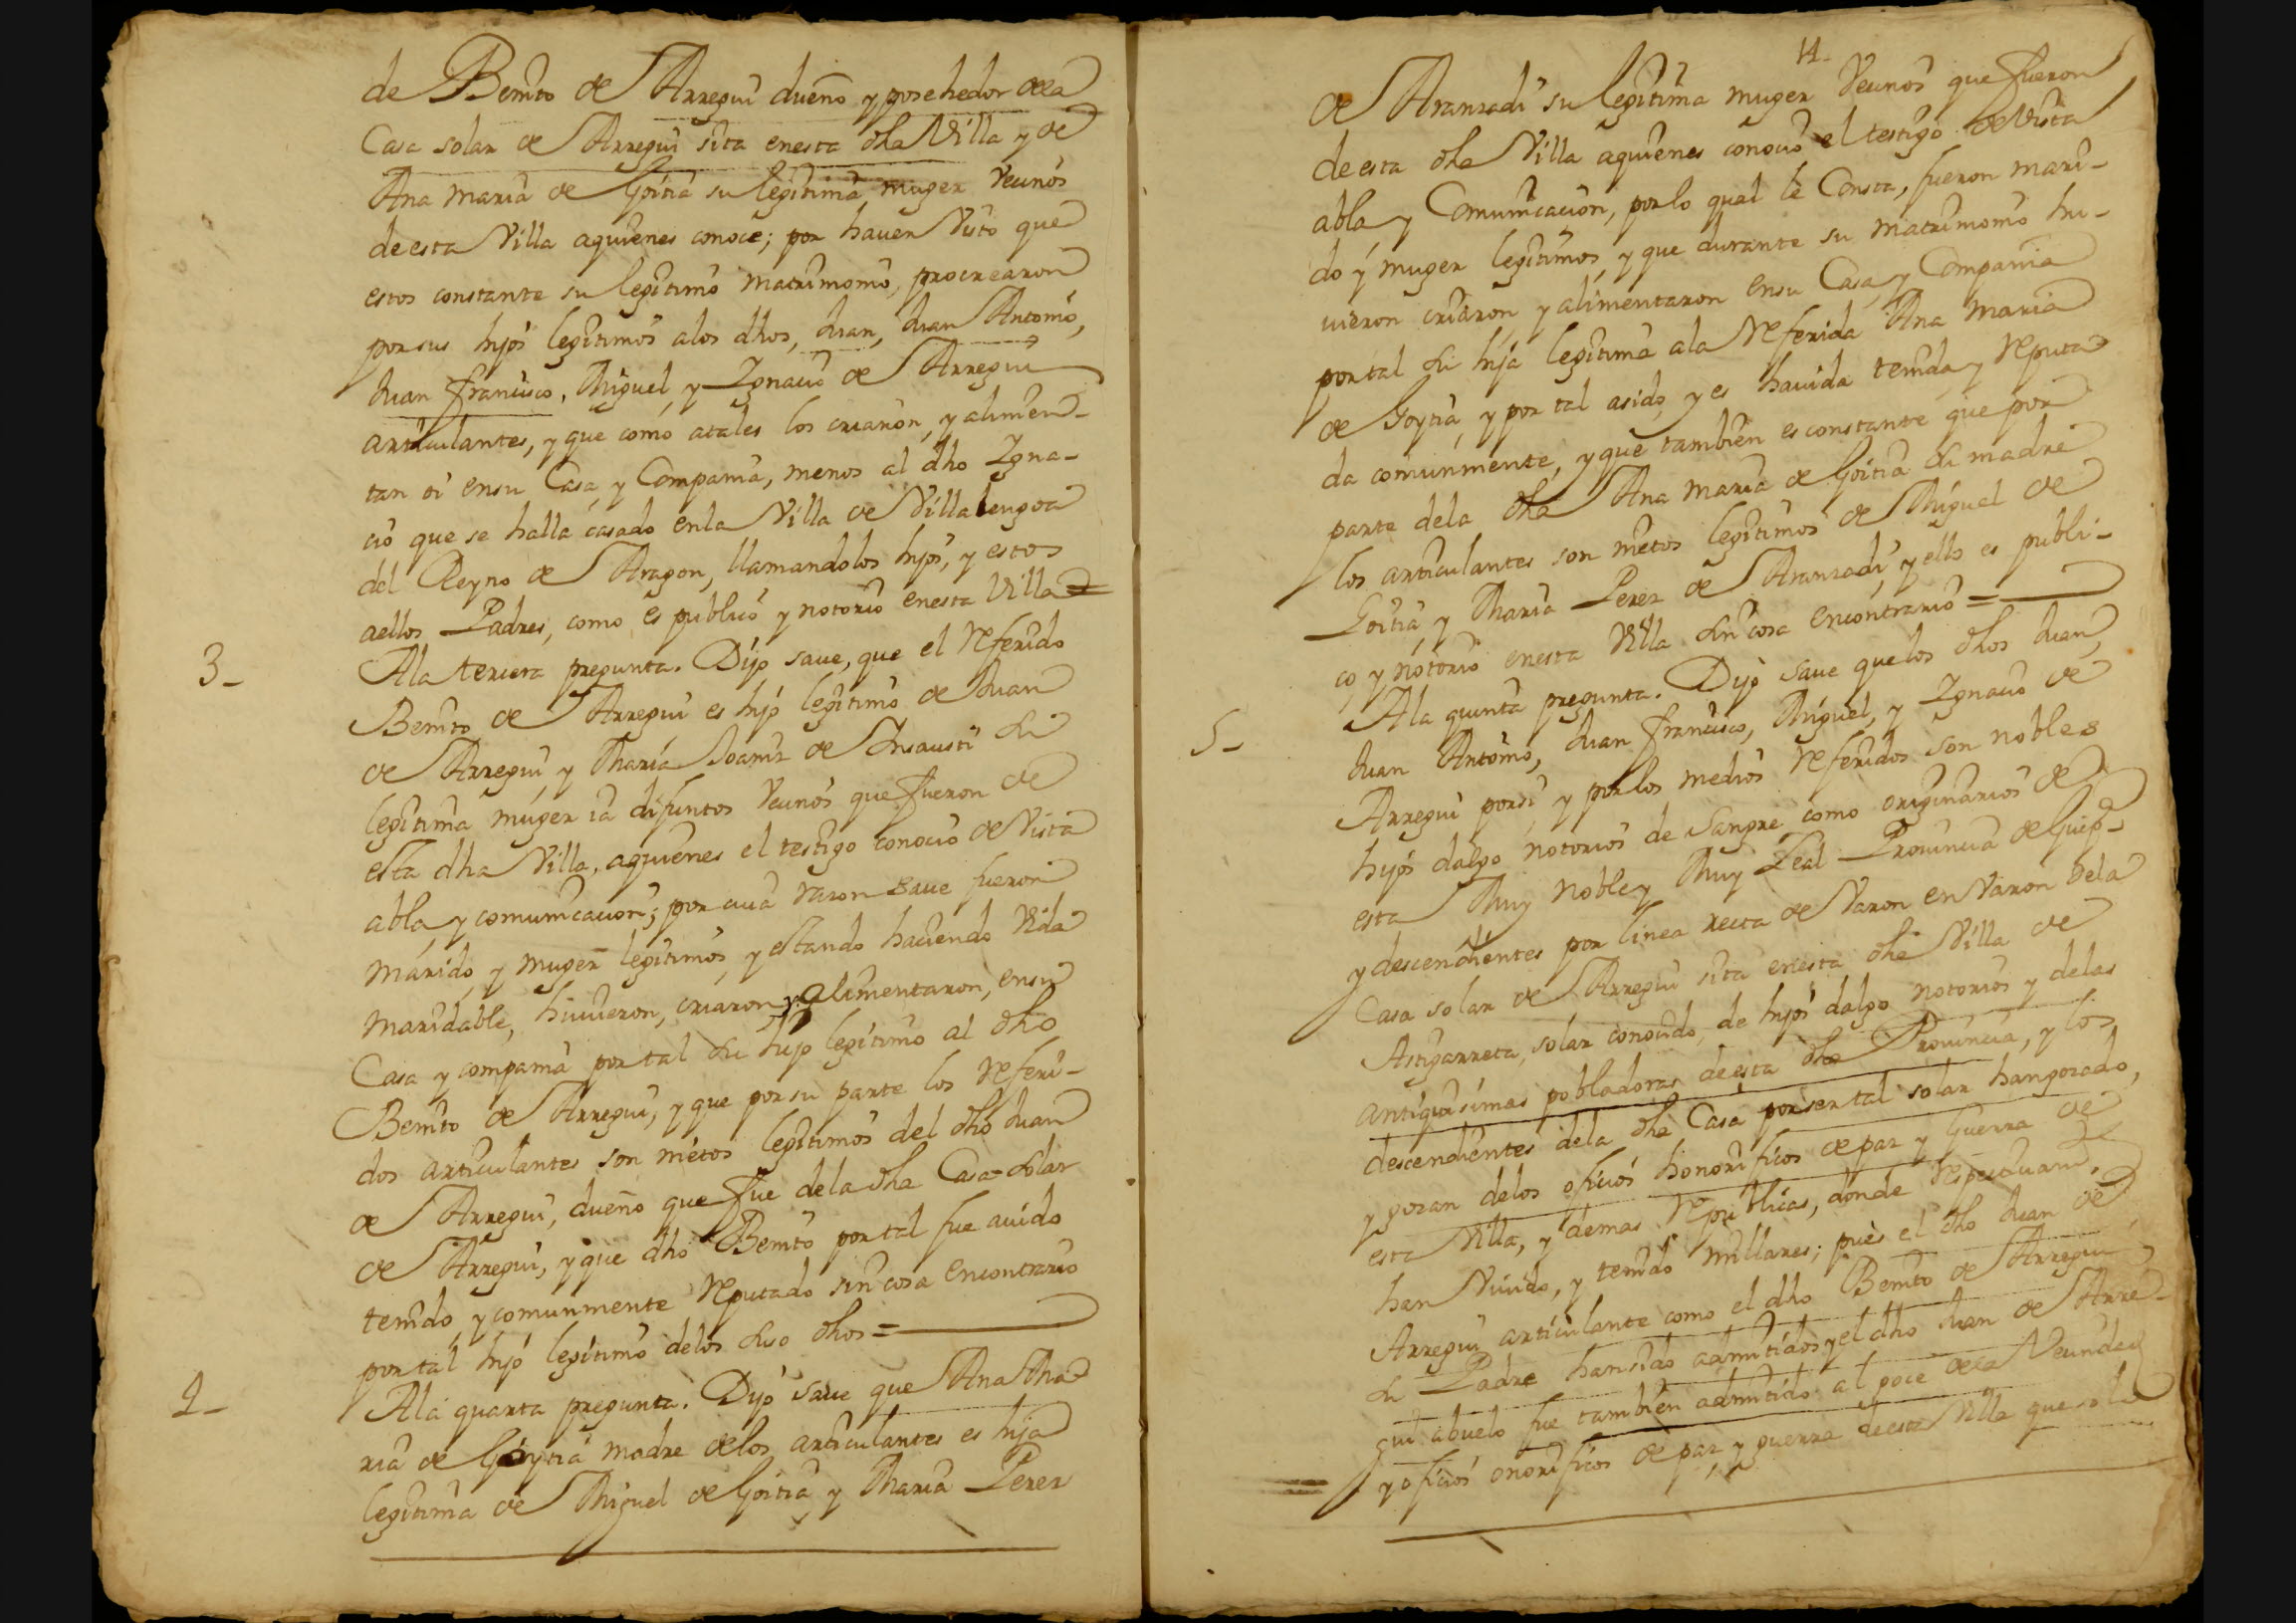 de Benito de Arregui dueño y posehedor dela
Casa solar de Arregui sita enesta dha Villa y de
Ana maria de Goitia su legitima muger Vecinos
deesta Villa aquienes conoce; por hauer Visto que
estos constante su legitimo matrimonio, procrearon
por sus hijos legitimos alos dhos, Juan, Juan Antonio,
Juan francisco, Miguel, y Ignacio de Arregui
articulantes, y que como atales los criaron, y alimen-
tan oi ensu Casa, y Compania, menos al dho Igna-
cio que se halla casado enla Villa de Villalengoa
del Reyno de Aragon, llamandolos hijos, y estos
aellos Padres, como es publico y notorio enesta Villa =
3- Ala tercera pregunta. Dijo saue, que el Referido
Benito de Arregui es hijo legitimo de Juan
de Arregui, y Maria Joaniz de Insausti su
legitima muger ia difuntos Vecinos que fueron de
esta dha Villa, aquienes el testigo conocio de Vista
abla, y comunicacion; por cuia razon saue fueron
marido, y muger legitimos, y estando haciendo Vida
maridable, huuieron, criaron, y alimentaron, ensu
Casa y compania por tal su hijo legitimo al dho
Benito de Arregui, y que por su parte los referi-
dos articulantes son nietos legitimos del dho Juan
de Arregui, dueño que fue dela dha Casa solar
de Arregui, y que dho Benito por tal fue auido
tenido y comunmente Reputado sin cosa encontrario
por tal hijo legitimo delos suso dhos =
4- Ala quarta pregunta. Dijo saue que Ana Ma-
ria de Goytia madre delos articulantes es hija
legitima de Miguel de Goitia y Maria Perez
14-
de Aranzadi su legitima muger Vecinos que fueron
deesta dha Villa aquienes conocio el testigo de Vista
abla y Comunicacion, por lo qual le Consta, fueron mari-
do y muger legitimos, y que durante su matrimonio hu-
uieron criaron y alimentaron ensu Casa, y Compania
por tal su hija legitima ala Referida Ana Maria
de Goytia, y por tal asido, y es hauida tenida, y Reputa-
da comunmente, y que tambien es constante que por
parte dela dha Ana Maria de Goitia su madre
los articulantes son nietos legitimos de Miguel de
Goitia y Maria Perez de Aranzadi, y ello es publi-
co, y notorio enesta Villa sin cosa encontrario =
5- Ala quinta pregunta. Dijo saue quelos dhos Juan,
Juan Antonio, Juan francisco, Miguel, y Ignacio de
Arregui porsi, y por los medios Referidos son nobles
hijos dalgo notorios de Sangre como originarios de
esta Muy Noble y Muy Leal Prouincia de Guip-
y descendientes por linea recta de Varon en Varon dela
Casa solar de Arregui sita enesta dha Villa de
Astigarreta, solar conocido, de hijos dalgo notorios y delas
antiquisimas pobladoras deesta dha Prouincia, y los
descendientes dela dha Casa por ser tal solar hangozado,
y gozan delos oficios honorificos de paz y Guerra de
esta Villa, y demas Republicas, donde respectiuam.
han Viuido, y tenido millares; pues el dho Juan de
Arregui articulante como el dho Benito de Arregui
su Padre hansido admitidos y el dho Juan de Arre-
gui abuelo fue tambien admitido al goce dela Vecindad
y oficios onorificos de paz, y guerra deesta Villa que solo